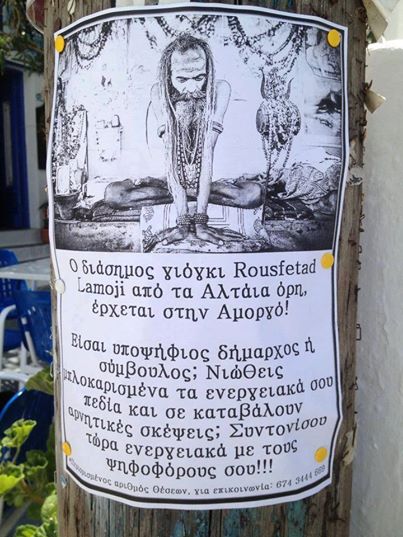 Ο διάσημος γιόγκι Rousfetad
Lamoji από τα Αλτάια όρη,
έρχεται στην Αμοργό!
Είσαι υποψήφιος δήμαρχος ή
σύμβουλος; Νιώθεις
μπλοκαρισμένα τα ενεργειακά σου
πεδία και σε καταβάλουν
αρνητικές σκέψεις; Συντονίσου
τώρα ενεργειακά με τους
ψηφοφόρους σου!!!
αριθμός θέσεων, για επικοινωνία: 674 3444 669